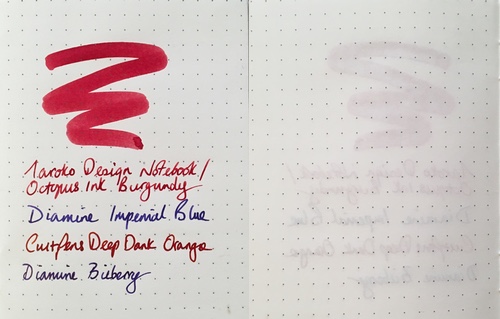 Taroko Design Notebook/
Octopus Ink Burgundy
Diamine Imperial Blue
Cultpens Deep Dark Orange
Diamine Bilberry